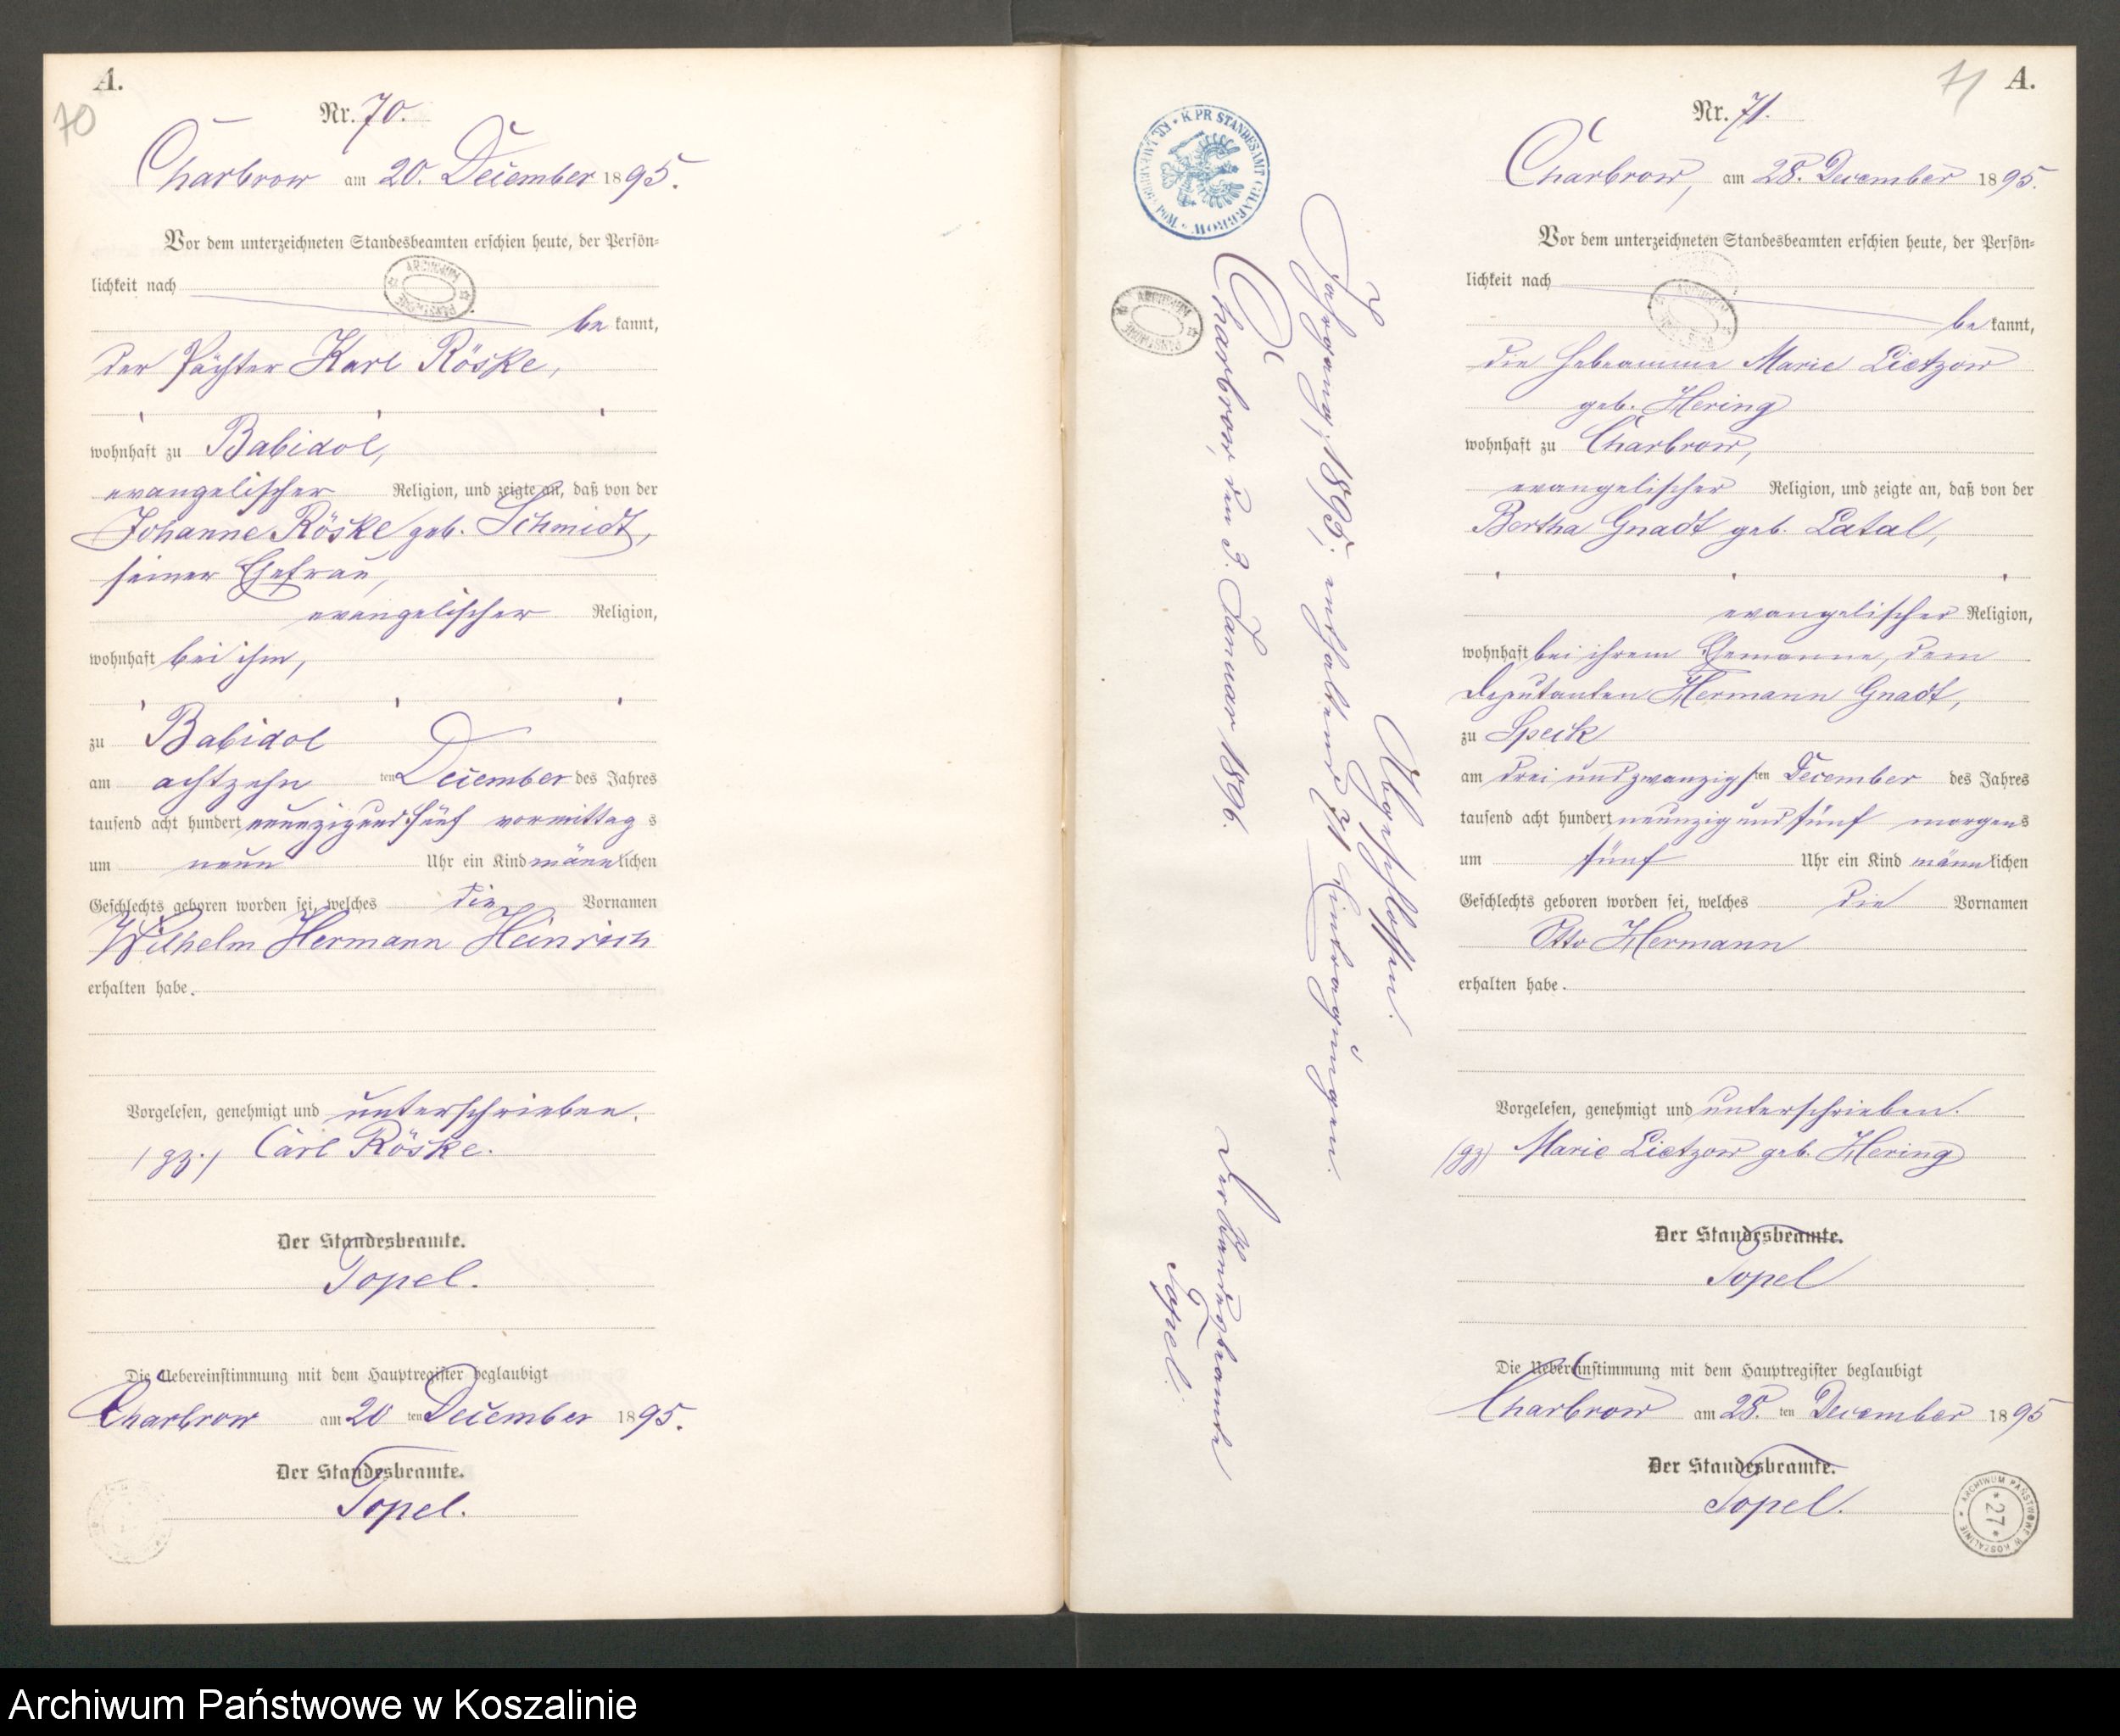 A.
70
Nr. 70.
Charbrow am 20. December 1895.
Vor dem unterzeichneten Standesbeamten erschien heute, der Persön=
lichkeit nach
bekannt,
der Pächter Karl Röske,
wohnhaft zu Babidol,
evangelischer Religion, und zeigte an, daß von der
Johanne Röske geb. Schmidt,
seiner Ehefrau,
evangelischer Religion,
wohnhaft bei ihm,
zu Babidol
am achtzehn ten December des Jahres
tausend acht hundert neunzig und fünf vormittags
um neun Uhr ein Kind männlichen
Geschlechts geboren worden sei, welches die Vornamen
Wilhelm Hermann Heinrich
erhalten habe.
Vorgelesen, genehmigt und unterschrieben.
/gz./ Carl Röske.
Der Standesbeamte.
Topel.
Die Uebereinstimmung mit dem Hauptregister beglaubigt
Charbrow am 20 ten December 1895.
Der Standesbeamte.
Topel.
K. PR. STANDESAMT CHARBROW
ARCHIWUM
Abgeschlossen.
Jahrgang 1895, enthaltend 71 Eintragungen.
Charbrow, den 3. Januar 1896.
Der Standesbeamte
Topel.
71 A.
Nr. 71.
Charbrow, am 28. December 1895.
Vor dem unterzeichneten Standesbeamten erschien heute, der Persön=
lichkeit nach
bekannt,
die Hebeamme Marie Lietzow
geb. Hering
wohnhaft zu Charbrow,
evangelischer Religion, und zeigte an, daß von der
Bertha Gnadt geb. Latal,
evangelischer Religion,
wohnhaft bei ihrem Ehemanne, dem
Deputanten Hermann Gnadt,
zu Speck
am drei und zwanzigsten December des Jahres
tausend acht hundert neunzig und fünf morgens
um fünf Uhr ein Kind männlichen
Geschlechts geboren worden sei, welches die Vornamen
Otto Hermann
erhalten habe.
Vorgelesen, genehmigt und unterschrieben.
(gz) Marie Lietzow geb. Hering
Der Standesbeamte.
Topel
Die Uebereinstimmung mit dem Hauptregister beglaubigt
Charbrow am 28. ten December 1895
Der Standesbeamte.
Topel.
ARCHIWUM PAŃSTWOWE W KOSZALINIE
* 27 *
Archiwum Państwowe w Koszalinie